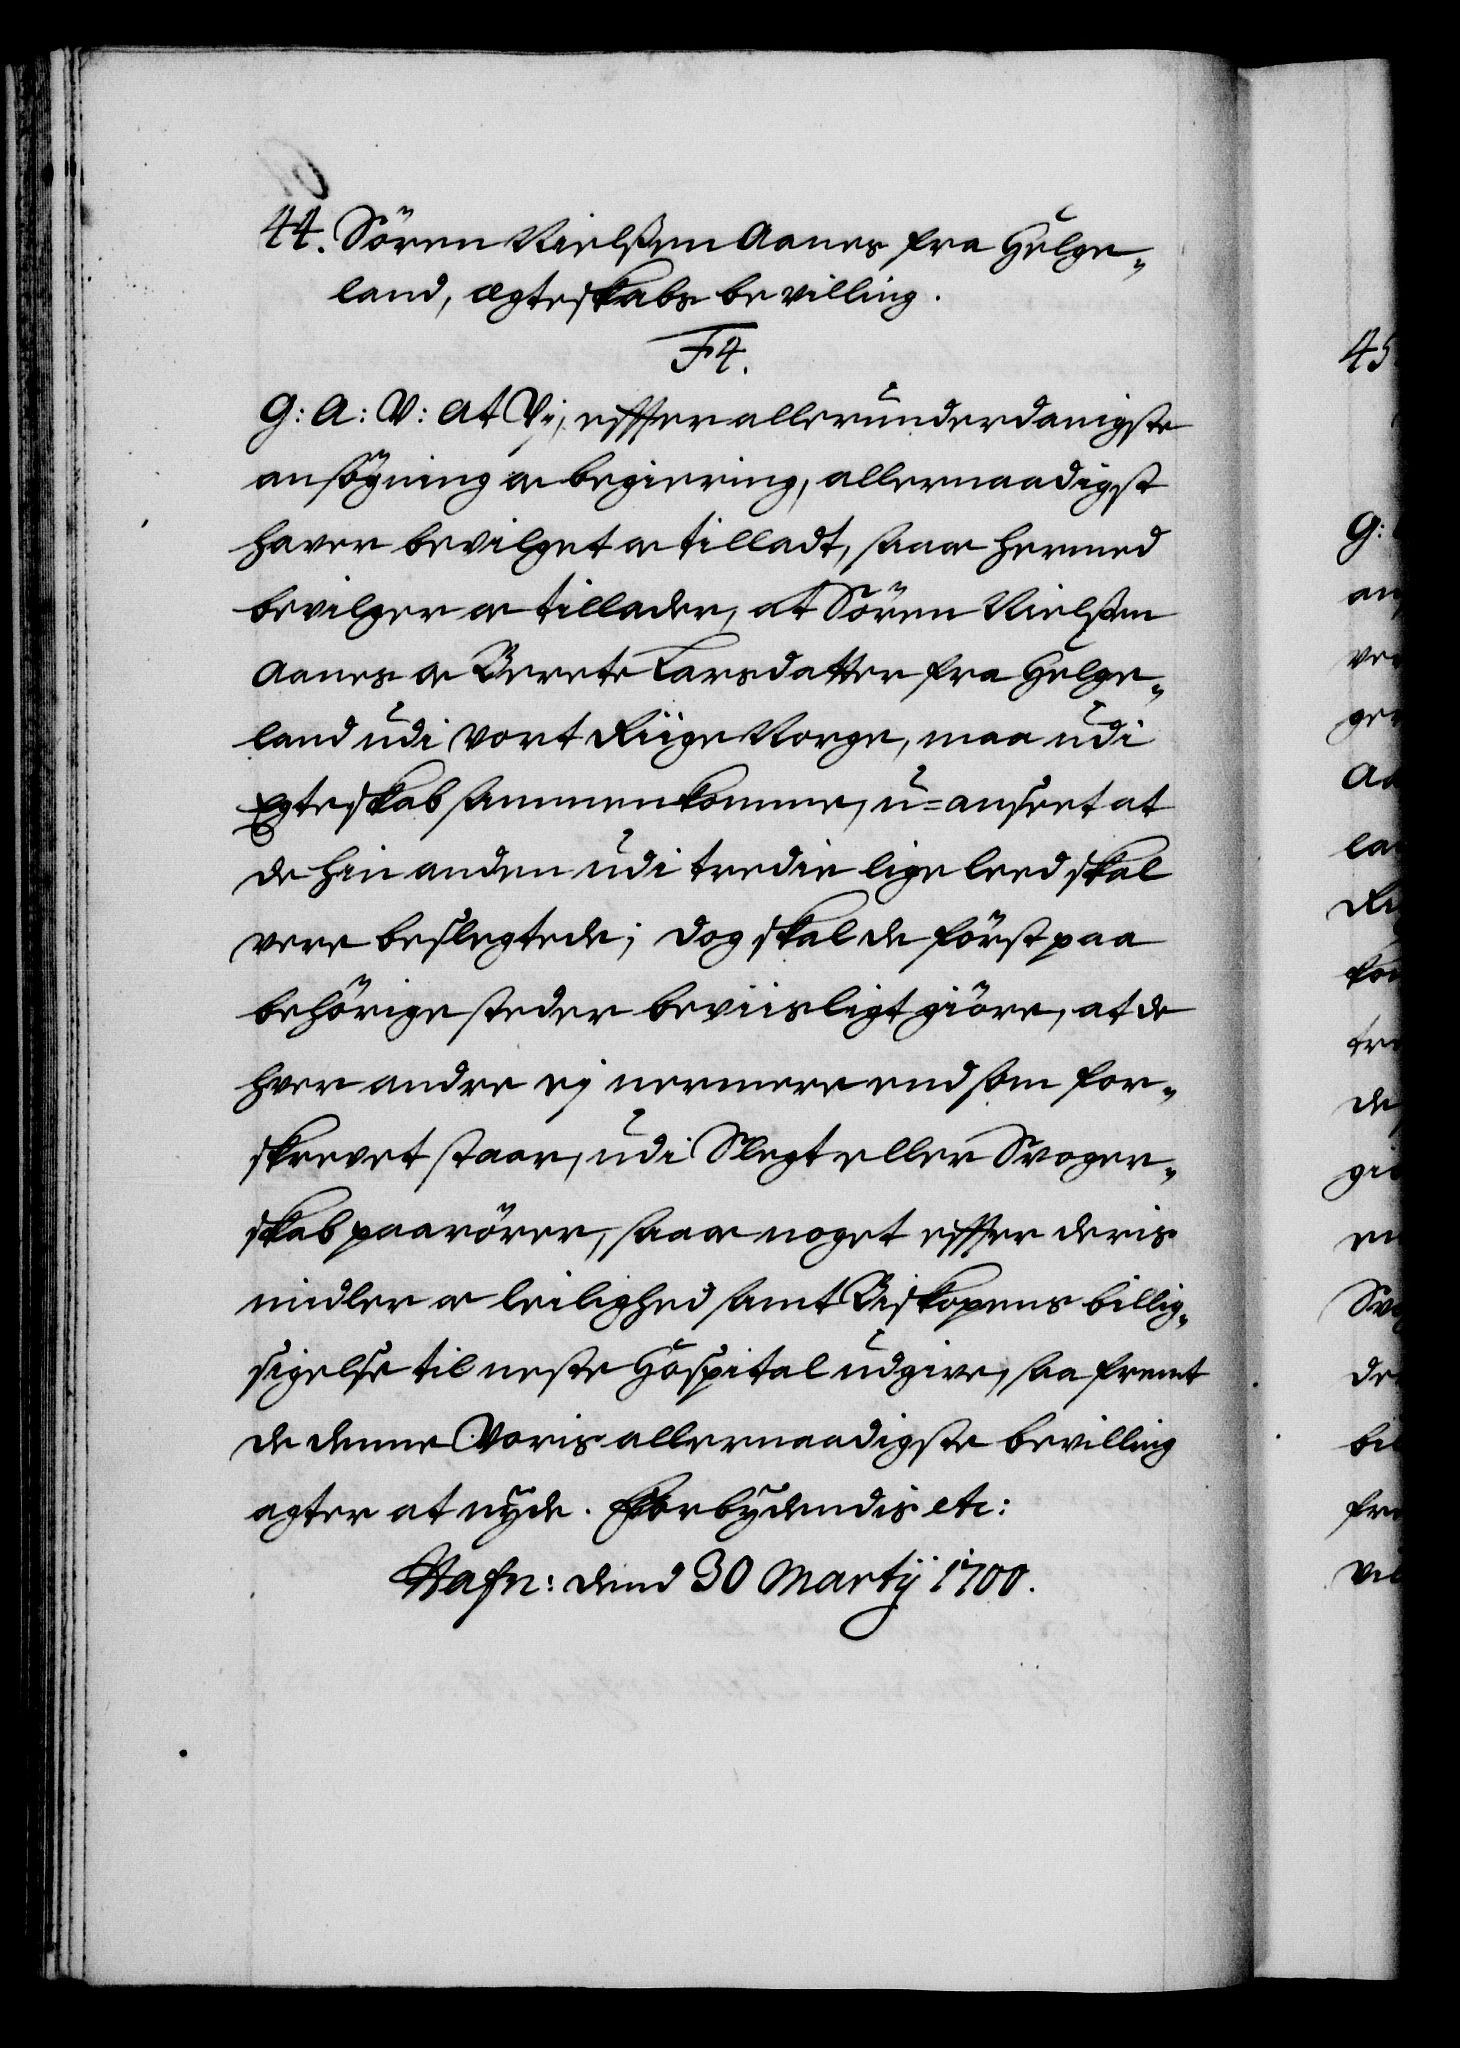 44. Sören Nielßen Aanes fra Helge„
land, ægteskabs bevilling.
F4.
G: A: V: at Vj, effter allerunderdanigste
ansögning oc begiering, allernaadigst
hafver bevilget oc tilladt, saa oc hermed
bevilger oc tillader, at Sören Nielßen
Aanes oc Berete Larsdatter fra Helge„
land udi Vort Riige Norge, maa udi
Egteskab sammenkomme, u=anseet at
de hin anden udi tredie lige leed skal
vere beslegtede; dog skal de först paa
behörige steder beviisligt giöre, at de
hver andre ej nermere end som for„
skrevet staar, udi Slegt eller Svoger„
skab paarörer, saa oc noget effter deris
midler oc leilighed samt Biskopens billig„
sigelse til neste Hospital udgive, saa fremt
de denne Voris allernaadigste bevilling
agter at nyde. Forbydendis etc:
Hafn: dend 30 Martij 1700.
45